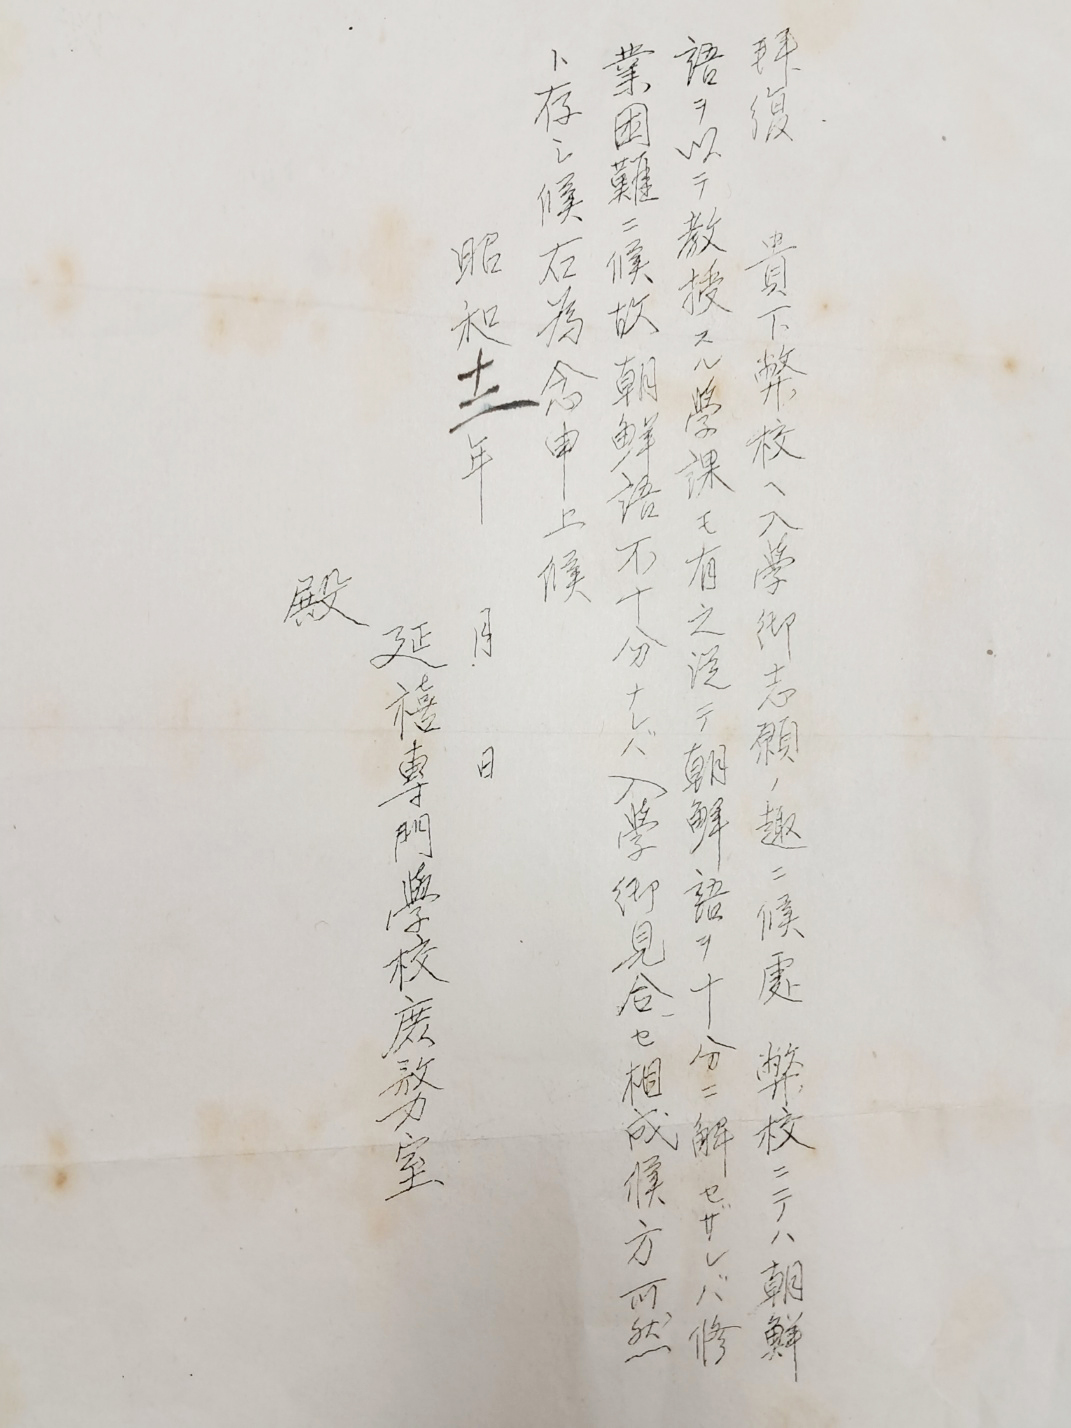 拝復　貴下弊校ヘ入學御志願ノ趣ニ候處　弊校ニテハ朝鮮
語ヲ以テ教授スル學課モ有之従テ朝鮮語ヲ十分ニ解セザレバ修
業困難ニ候故朝鮮語不十分ナレバ入學御見合セ相成候方可然
ト存シ候右為念申上候
昭和十二年　月　日
延禧專門學校庶務室
殿